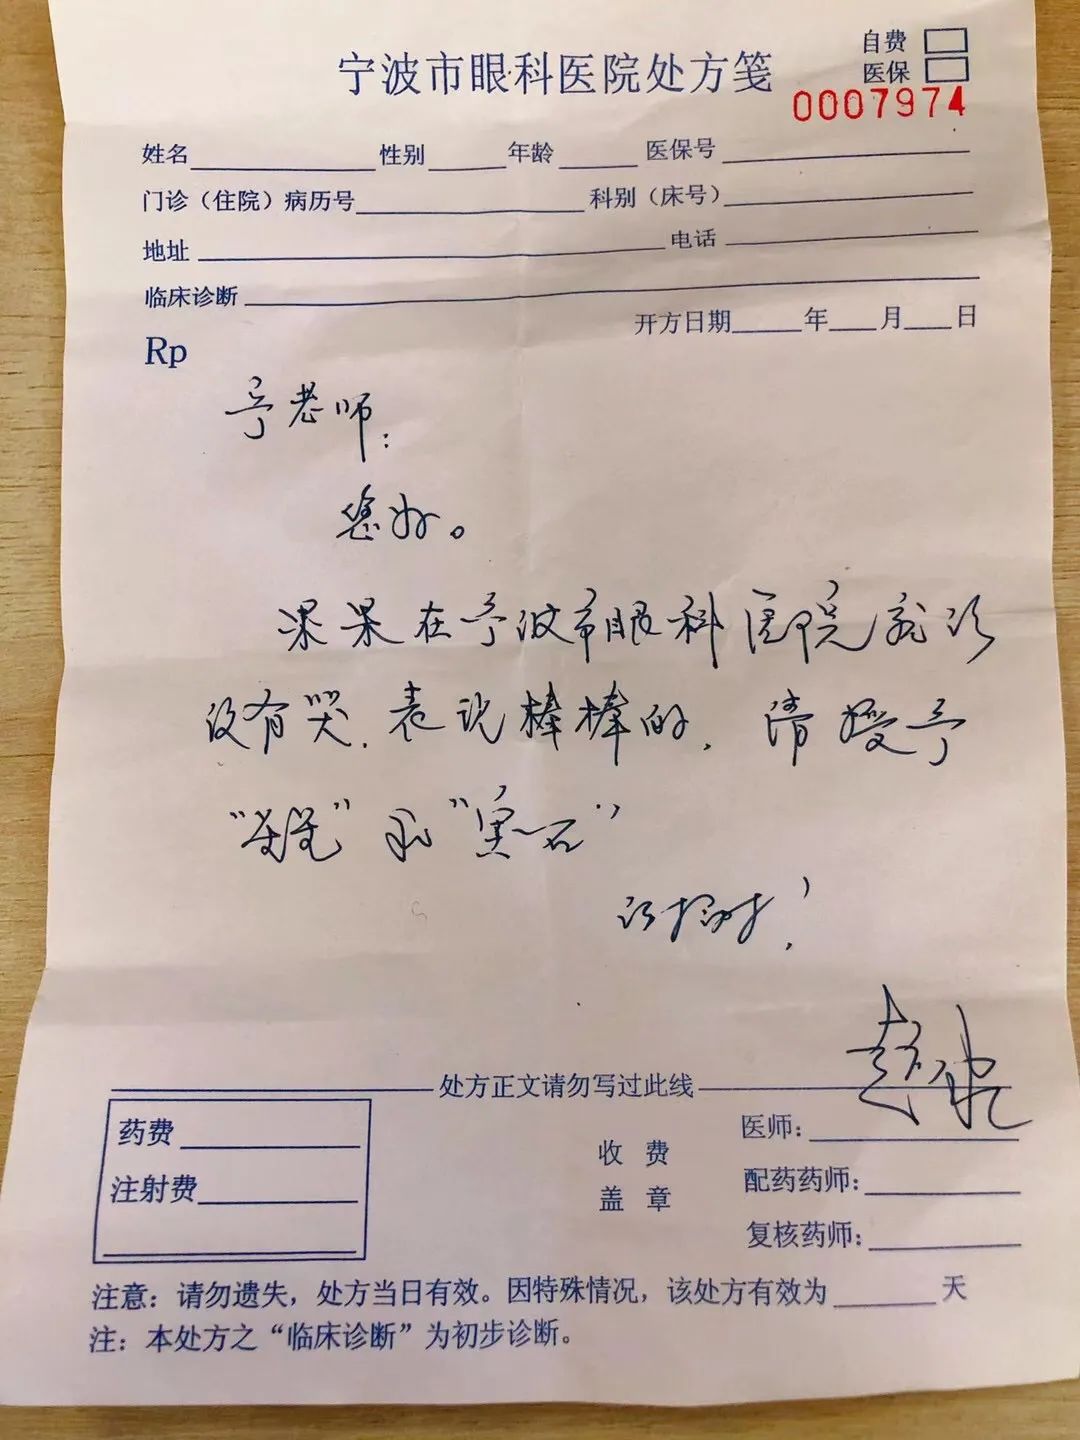 宁波市眼科医院处方笺
自费
医保
0007974
姓名 性别 年龄 医保号
门诊（住院）病历号 科别（床号）
地址 电话
临床诊断
开方日期 年 月 日
Rp
宁老师：
您好。
果果在宁波市眼科医院就诊
没有哭，表现棒棒的，请授予
和“黑石”
处方正文请勿写过此线
药费
注射费
收费
盖章
医师：
配药药师：
复核药师：
注意：请勿遗失，处方当日有效。因特殊情况，该处方有效为 天
注：本处方之“临床诊断”为初步诊断。